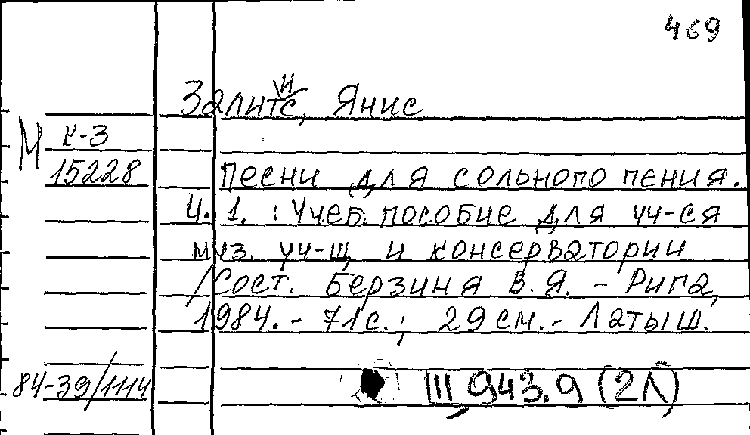 469
Залитис, Янис
М К-3
15228
Песни для сольного пения.
Ч. 1. : Учеб. пособие для уч-ся
муз. уч-щ и консерватории
/Сост. Берзиня В. Я. - Рига,
1984. - 71с.; 29см. - Латыш.
84-39/1114
III, 943.9 (2Л)